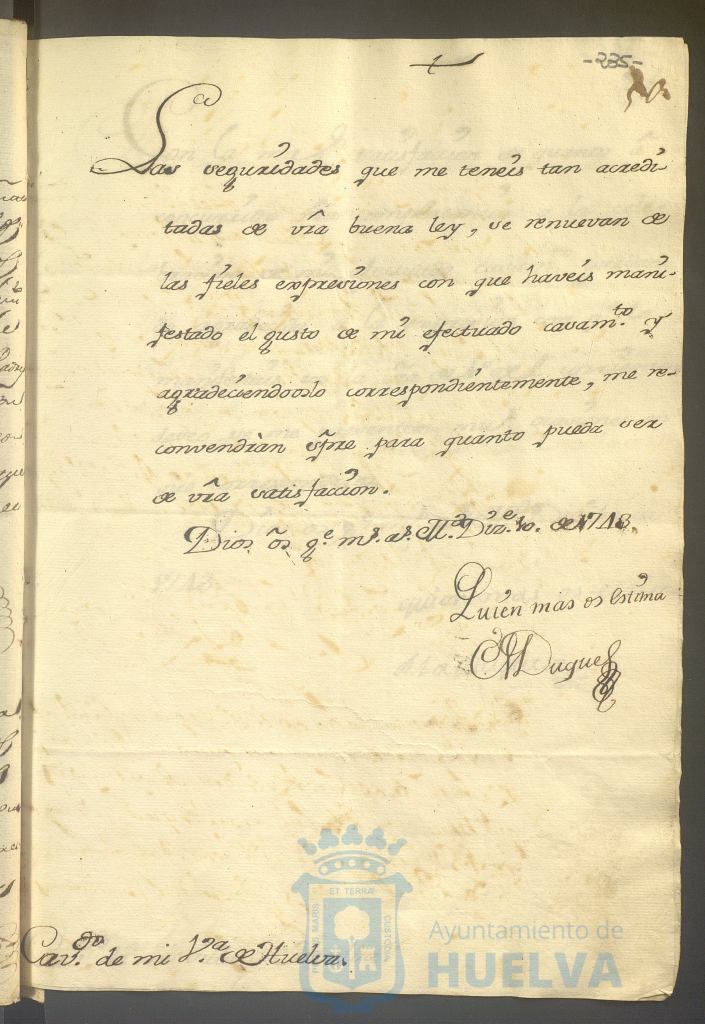 -235-
Las seguridades que me teneis tan acredi-
tadas de vra buena ley, se renuevan de
las fieles expresiones con que haveis mani-
festado el gusto de mi efectuado casam.to y
agradeciendooslo correspondientemente, me re-
convendràn spre para quanto pueda ser
de vra satisfaccion.
Dios os g.e m.s a.s M.d Diz.e 10. de 1748.
Quien mas os estima
El Duque
Cav.do de mi V.a de Huelva.
ET TERRÆ
PORTUS MARIS
CUSTODIA
Ayuntamiento de
HUELVA